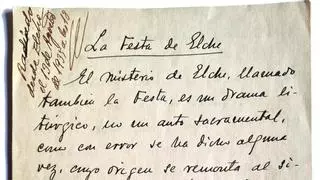 Radiado
desde Elche
el 13 de Agosto
de 1935 a las 18
La Festa de Elche
El misterio de Elche, llamado
también la Festa, es un drama li-
túrgico, no un auto sacramental,
como con error se ha dicho alguna
vez, cuyo origen se remonta al si-